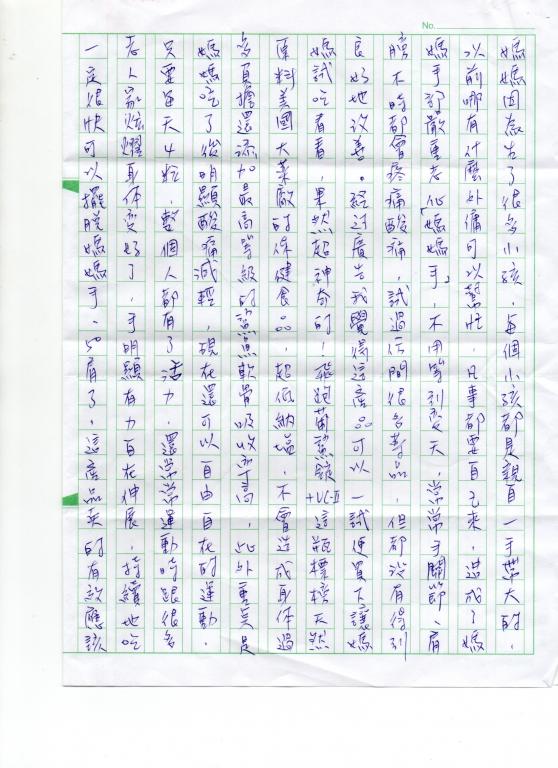 No.
媽媽因為生了很多小孩，每個小孩都是親自一手帶大的，
以前哪有什麼外傭可以幫忙，凡事都要自己來，造成了媽
媽手部嚴重老化「媽媽手」，不用等到變天，常常手關節、肩
膀不時都會疼痛酸痛，試過任間很多對品，但都沒有得到
良好地改善。經過廣告我覺得這產品可以一試便買下讓媽
媽試吃看看，果然超神奇的，飛跑葡鯊錠+UC-II這瓶標榜天然
原料美國大藥廠的保健食品，超低納塩，不會造成身體過
多負擔還添加最高等級的鯊魚軟骨吸收率高，此外重點是
媽媽吃了後明顯酸痛減輕，現在還可以自由自在的運動，
只要每天4粒，整個人都有了活力，還常常運動時跟很多
老人家炫耀身体變好了，手明顯有力自在伸展，持續地吃
一定很快可以擺脫媽媽手、50肩了，這產品真的有效應該